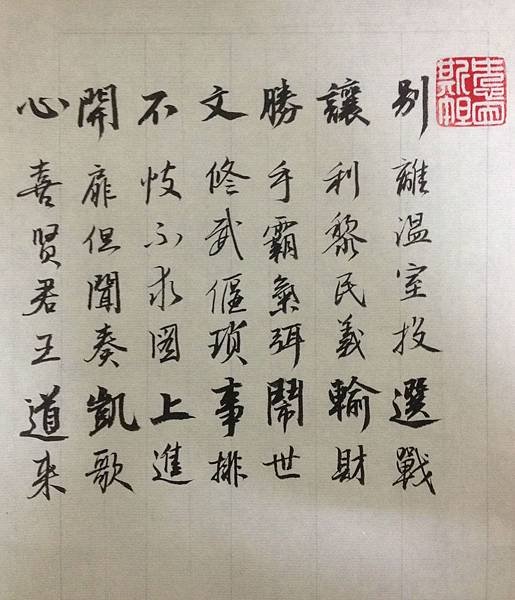 別離溫室投選戰
讓利黎民義輸財
勝手霸氣弭鬧世
文修武偃瑣事排
不忮不求圖上進
開扉但聞奏凱歌
心喜賢君王道來